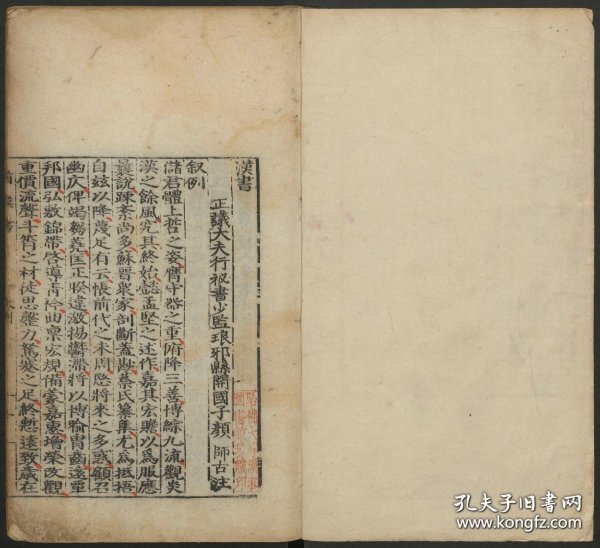 漢書
正議大夫行祕書少監琅邪縣開國子顏 師古 注
叙例
儲君體上哲之姿膺守器之重俯降三善博綜九流觀炎
漢之餘風究其終始懿孟堅之述作嘉其宏贍以爲服應
曩說踈紊尚多蘇晋衆家剖斷蓋尠蔡氏纂集尤爲抵捂
自兹以降蔑足有云悵前代之未周愍將來之多惑顧召
幽仄俾竭芻蕘匡正睽違激揚鬱滯將以博喻胄齒遠覃
邦國弘敷錦帶啓導青衿曲禀宏規備蒙嘉惠增榮改觀
重價流聲斗筲之材徒思罄力駑蹇之足終慙遠致歲在
孔夫子旧书网
www.kongfz.com